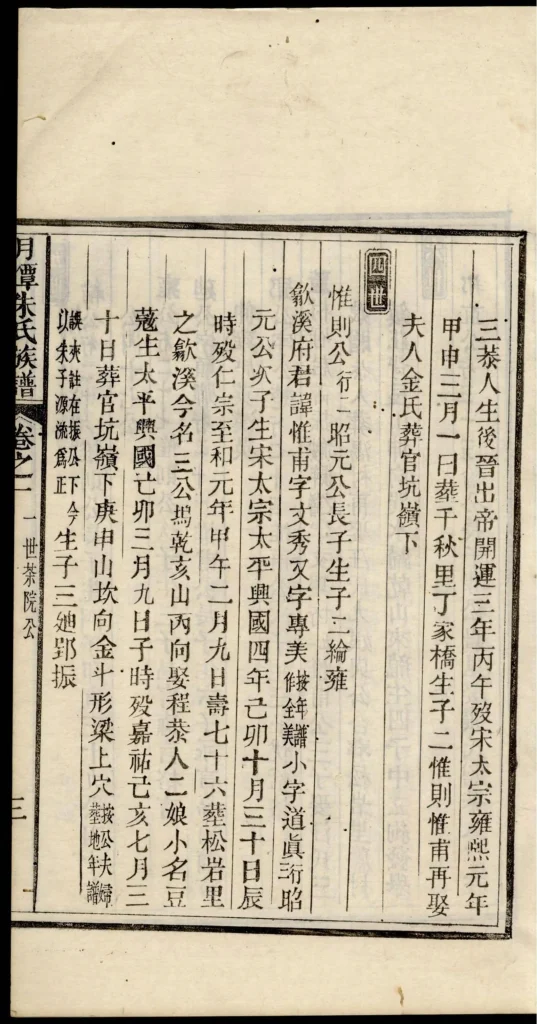 三恭人生後晉出帝開運三年丙午歿宋太宗雍熙元年
甲申三月一日塟千秋里丁家橋生子二惟則惟甫再娶
夫人金氏葬官坑嶺下
四世
惟則公行二昭元公長子生子二綸雍
歙溪府君諱惟甫字文秀又字專美按年譜作全美小字道眞行昭
元公次子生宋太宗太平興國四年己卯十月三十日辰
時歿仁宗至和元年甲午二月九日壽七十六塟松岩里
之歙溪今名三公塢乾亥山丙向娶程恭人二娘小名豆
蔻生太平興國己卯三月九日子時歿嘉祐己亥七月三
十日葬官坑嶺下庚申山坎向金斗形梁上穴按公夫婦塟地年譜
誤夾註在振公下今以朱子源流爲正生子三迪郢振
月潭朱氏族譜 卷之一 一世茶院公 三